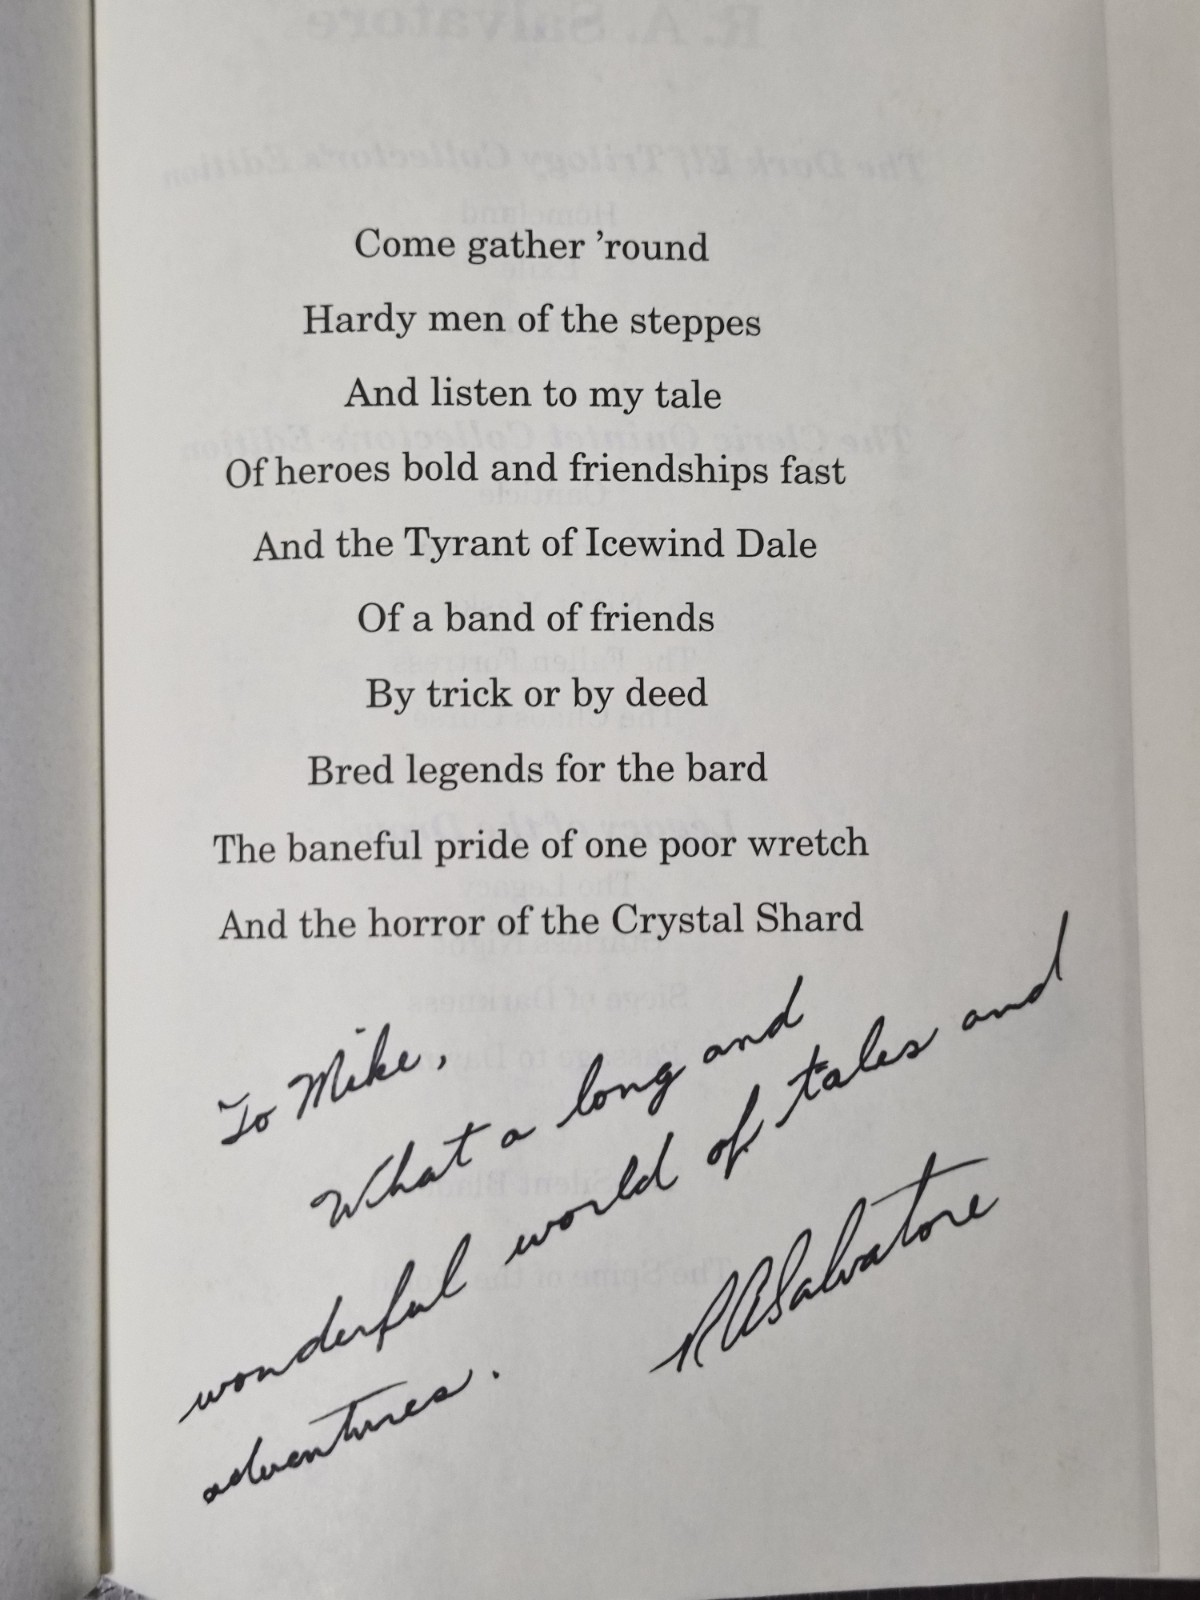 Come gather ’round
Hardy men of the steppes
And listen to my tale
Of heroes bold and friendships fast
And the Tyrant of Icewind Dale
Of a band of friends
By trick or by deed
Bred legends for the bard
The baneful pride of one poor wretch
And the horror of the Crystal Shard
To Mike,
What a long and
wonderful world of tales and
adventures.
RASalvatore